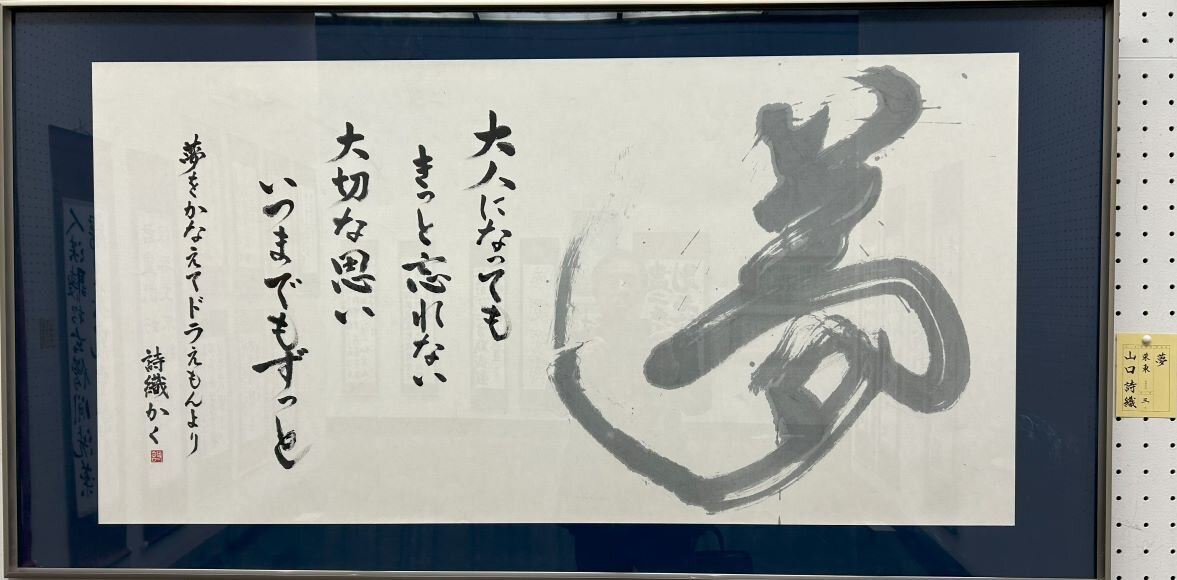 夢
大人になっても
きっと忘れない
大切な思い
いつまでもずっと
夢をかなえてドラえもんより
詩織かく
夢
三
山口詩織